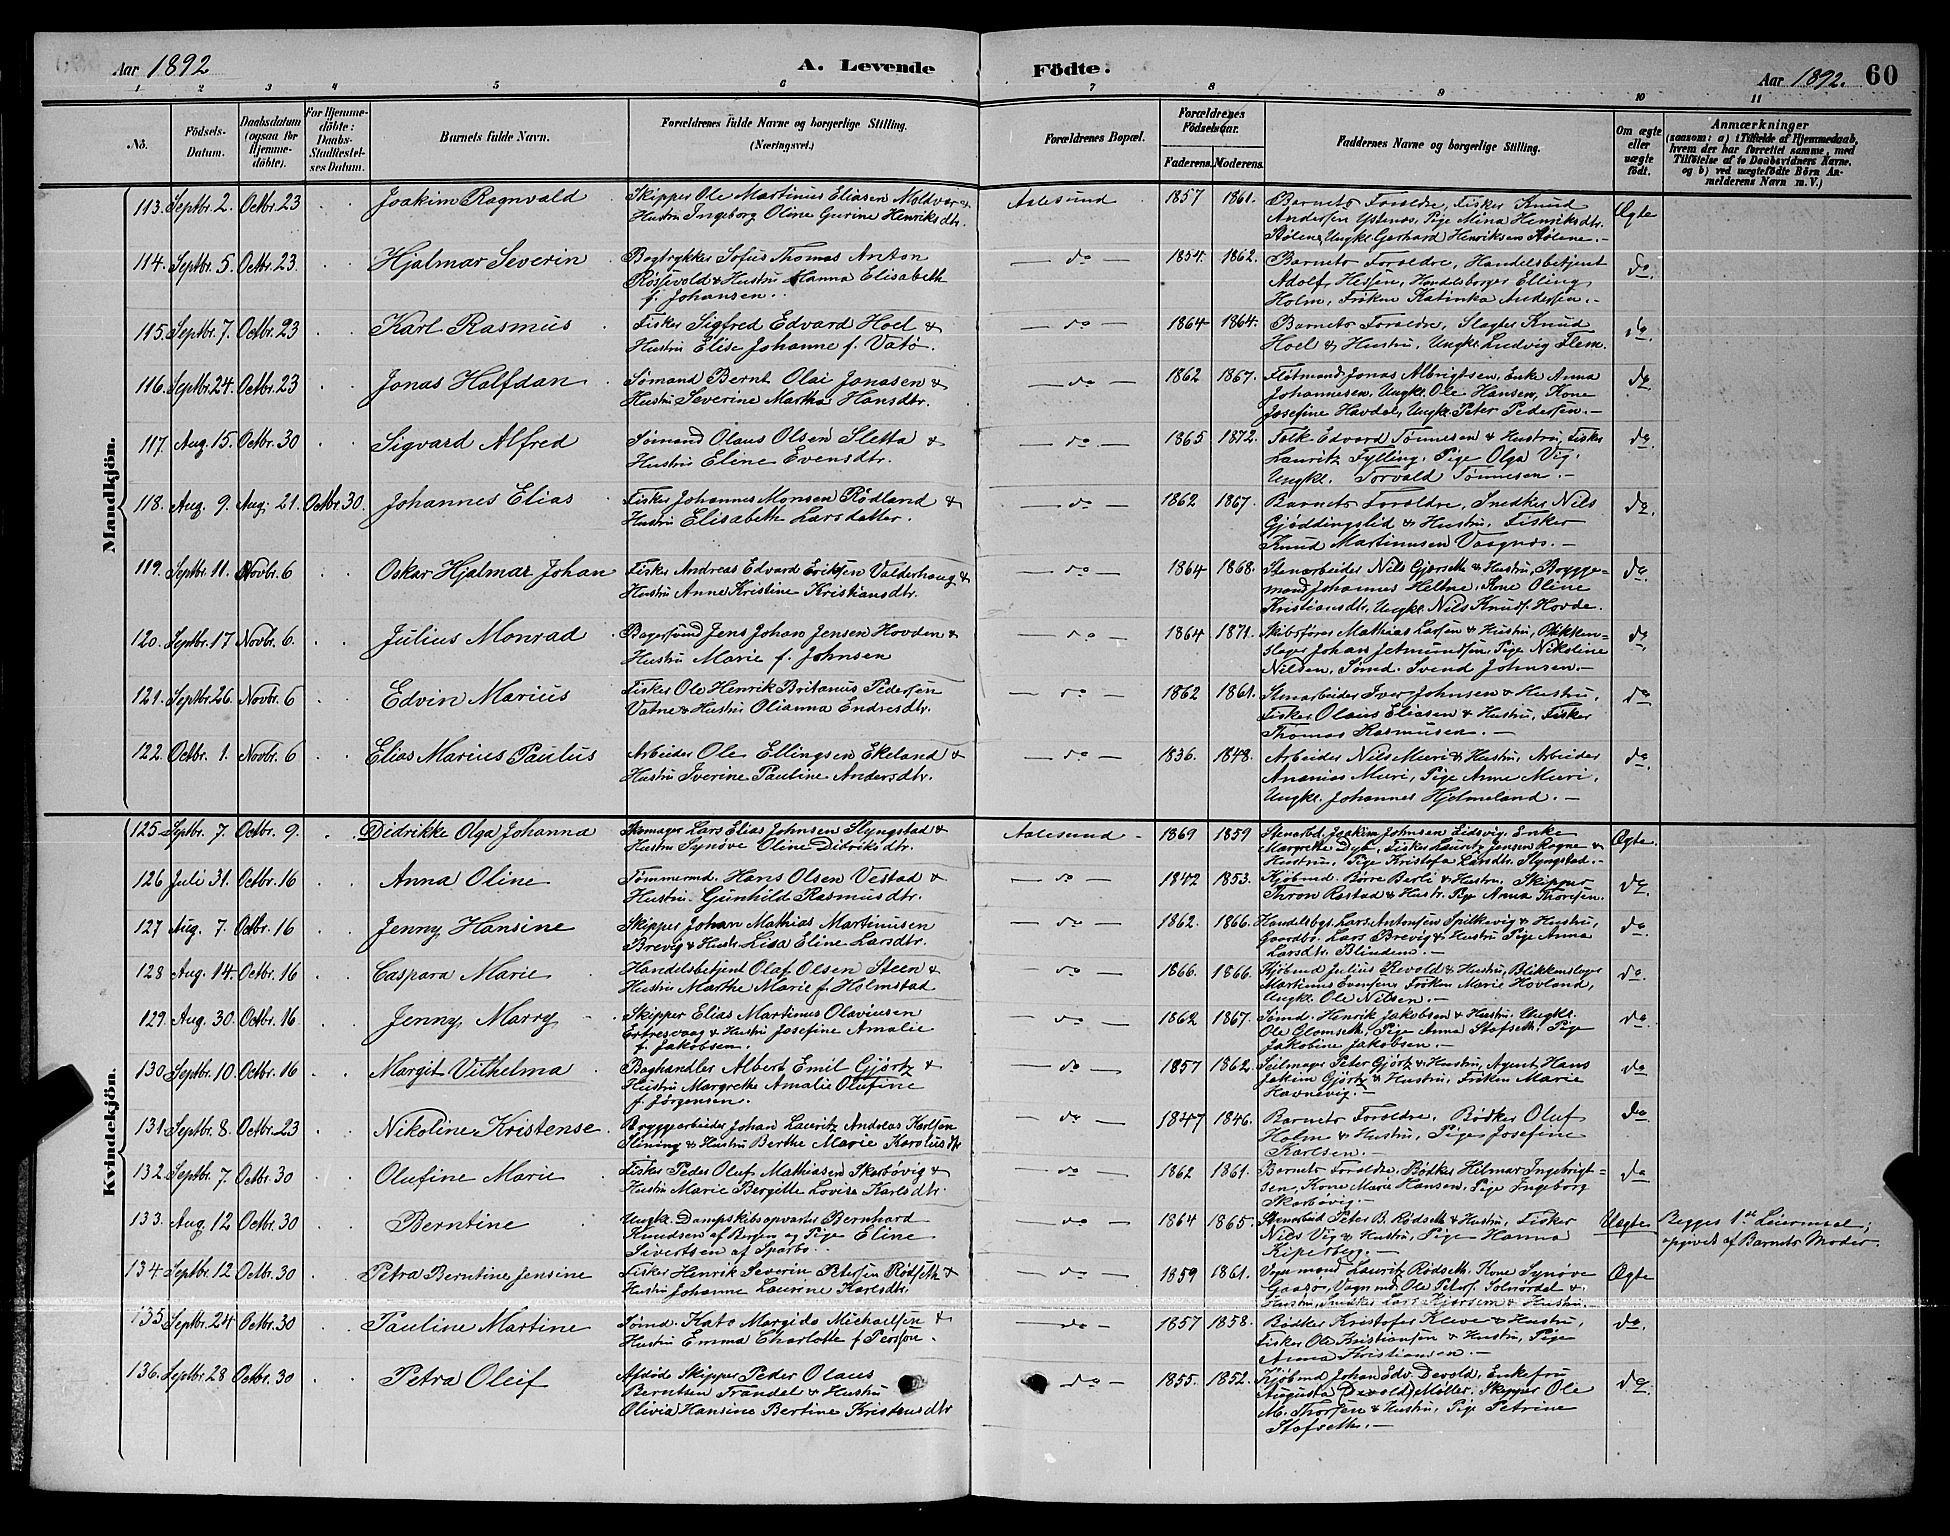 Aar 1892
A. Levende Födte.
Aar 1892. 60
1 2 3 4 5 6 7 8 9 10 11
No.
Födsels-Datum.
Daabsdatum (ogsaa for Hjemmedöbte).
For Hjemmedöbte: Daabs-Stadfæstelses Datum.
Barnets fulde Navn.
Forældrenes fulde Navne og borgerlige Stilling.
(Næringsvei.)
Forældrenes Bopæl.
Forældrenes Födselsaar.
Faderens. Moderens.
Faddernes Navne og borgerlige Stilling.
Om ægte eller uægte födt.
Anmærkninger
(saasom: a) i Tilfælde af Hjemmedaab, hvem der har forrettet samme, med Tilföielse af to Daabsvidners Navne. og b) ved uægtefödte Börn Anmelderens Navn m. V.)
Mandkjön.
113. Septbr. 2. Octbr. 23 Joakim Ragnvald Skipper Ole Martinus Eliasen Moldvær &
Hustru Ingeborg Oline Gurine Henriksdtr. Aalesund 1857 1861. Barnets Forældre, Fisker Knud
Andersen Ystenes, Pige Mina Henriksdtr.
Stølene, Ungkr. Gerhard Henriksen Stølene. Ægte
114. Septbr. 5. Octbr. 23. Hjalmar Severin Bogtrykker Sofus Thomas Anton
Røssevold & Hustru Hanna Elisabeth
f. Johansen. do 1854. 1862. Barnets Forældre, Handelsbetjent
Adolf Hessen, Handelsborger Elling
Holm, Frøken Katinka Andersen. do.
115. Septbr. 7. Octbr. 23 Karl Rasmus Fisker Sigfred Edvard Hoel &
Hustru Elise Johanne f. Vatø. do 1864 1864. Barnets Forældre, Slagter Knud
Hoel & Hustru, Ungkr. Ludvig Flem. do.
116. Septbr. 24. Octbr. 23 Jonas Halfdan Sømand Bernt Olai Jonasen &
Hustru Severine Martha Hansdtr. do 1862 1867. Fløtmand Jonas Albrigtsen, Enke Anna
Johannesen, Ungkr. Ole Hansen, Kone
Josefine Havdal, Ungkr. Peter Pedersen. do.
117. Aug. 15. Octbr. 30 Sigvard Alfred Sømand Olaus Olsen Sletta &
Hustru Eline Evensdtr. do 1865 1872. Tolk Edvard Tønnesen & Hustru, Fisker
Lauritz Fylling, Pige Olga Vig,
Ungkr. Torvald Tønnesen do.
118. Aug. 9. Aug. 21. Octbr. 30. Johannes Elias Fisker Johannes Monsen Rødland &
Hustru Elisabeth Larsdatter. do 1862 1867. Barnets Forældre, Snedker Nils
Gjøddingslid & Hustru, Fisker
Knud Martinusen Vaagnes. do.
119. Septbr. 11. Novbr. 6 Oskar Hjalmar Johan Fisker Andreas Edvard Eriksen Valderhaug &
Hustru Anne Kristine Kristiansdtr. do 1864 1868. Stenarbeider Nils Gjørseth & Hustru, Brygge-
mand Johannes Heltne, Ane Oline
Kristiansdtr, Ungkr. Nils Knuds. Hovde. do.
120. Septbr. 17 Novbr. 6. Julius Monrad Bagersvend Jens Johan Jensen Hovden &
Hustru Marie f. Johnsen do 1864 1871. Skibsfører Mathias Larsen & Hustru, Blikken-
slager Johan Jetmundsen, Pige Nikoline
Nilsen, Sømd. Svend Johnsen. do
121. Septbr. 26. Novbr. 6 Edvin Marius Fisker Ole Henrik Britanus Pedersen
Vatne & Hustru Olianna Endresdtr. do 1862 1861. Stenarbeider Iver Johnsen & Hustru,
Fisker Olaus Eliasen & Hustru, Fisker
Thomas Rasmusen. do.
122. Octbr. 1. Novbr. 6 Elias Marius Paulus Arbeider Ole Ellingsen Ekeland &
Hustru Iverine Pauline Andersdtr. do 1836. 1848. Arbeider Nils Muri & Hustru, Arbeider
Ananias Muri, Pige Anne Muri,
Ungkr. Johannes Hjelmeland. do.
Kvindekjön.
125. Septbr. 7. Octbr. 9. Didrikke Olga Johanna Skomager Lars Elias Johnsen Slyngstad &
Hustru Synøve Oline Didriksdtr. Aalesund 1869 1859 Stenarbd. Joakim Johnsen Eidsvig, Enke
Margrethe Dyb, Fisker Lauritz Jensen Rogne &
Hustru, Pige Kristofa Larsdtr. Slyngstad. Ægte.
126 Juli 31. Octbr. 16 Anna Oline Tømmermd. Hans Olsen Vestad &
Hustru Gunhild Rasmusdtr. do 1842 1853. Kjøbmd. Børre Berli & Hustru, Skipper
Thron Rastad & Hustr. Pige Anna Thorsen. do.
127 Aug. 7. Octbr. 16 Jenny Hansine Skipper Johan Mathias Martinusen
Brevig & Hustr. Lisa Eline Larsdtr. do 1862. 1866. Handelsbgr. Lars Antonsen Spilkevig & Hustru,
Gaardbr. Lars Brevig & Hustru Pige Anna
Larsdtr. Blindem. do.
128 Aug. 14. Octbr. 16 Caspara Marie Handelsbetjent Olaf Olsen Steen &
Hustru Marthe Marie f. Holmstad do 1866. 1866. Kjøbmd Julius Revold & Hustru, Blikkenslager
Martinus Evensen, Frøken Marie Hovland,
Ungkr. Ole Nilsen. do.
129. Aug. 30. Octbr. 16 Jenny Marry Skipper Elias Martinus Olaviusen
Erfresvaag & Hustru Josefine Amalie
f. Jakobsen. do 1862 1867. Sømd. Henrik Jakobsen & Hustru. Ungkr.
Ole Glomseth, Pige Anna Stafseth, Pige
Jakobine Jakobsen. do.
130 Septbr. 10 Octbr. 16 Margit Vilhelma Boghandler Albert Emil Gjørtz &
Hustru Margrethe Amalie Olufine
f. Jørgensen. do 1857 1862. Seilmager Peter Gjørtz & Hustru, Agent Hans
Jakim Gjørtz & Hustru, Frøken Marie
Havnevig. do
131. Septbr. 8. Octbr. 23 Nikoline Kristense Bryggearbeider Johan Lauritz Andreas Karlsen
Slining & Hustru Berthe Marie Karolusdtr do 1847 1846. Barnets Forældre, Bødker Oluf
Holm & Hustru, Pige Josefine
Karlsen. do
132. Septbr. 7. Octbr. 30 Olufine Marie Fisker Peder Oluf Mathiasen Skarbøvig &
Hustru Marie Bergitte Lovise Karlsdtr. do 1862 1861. Barnets Forældre, Bødker Hilmar Ingebrigt-
sen, Kone Marie Hansen, Pige Ingeborg
Skarbøvig. do
133. Aug. 12 Octbr. 30 Berntine Ungkr. Dampskibsopvarter Bernhard
Knudsen af Bergen og Pige Eline
Sivertsen af Sparbo. do 1864 1865. Stenarbeid Peter B. Rødseth & Hustru, Fisker
Nils Vig & Hustru, Pige Hanna
Kiperberg. Uægte Begges 1ste Leiermaal;
opgivet af Barnets Moder.
134 Septbr. 12 Octbr. 30 Petra Berntine Jensine Fisker Henrik Severin Petersen Rødseth &
Hustru Johanne Laurine Karlsdtr. do 1859 1861. Vognmand Lauritz Rødseth, Kone Synøve
Gaasø, Vognmd. Ole Peters. Solnørdal &
Hustru, Snedker Lars Kjørsem & Hustru. Ægte
135. Septbr. 24 Octbr. 30 Pauline Martine Sømd. Kato Margido Michaelsen &
Hustru Emma Charlotte f. Persson. do 1857 1858. Bødker Kristofer Kleve & Hustru,
Fisker Ole Kristiansen & Hustru, Pige
Anna Kristiansen. do.
136. Septbr. 28 Octbr. 30 Petra Oleif Afdød Skipper Peder Olaus
Berntsen Frandal & Hustru
Olivia Hansine Bertine Kristensdtr do 1855. 1852. Kjøbmd Johan Edv. Devold, Enkefru
Augusta (Devold) Møller, Skipper Ole
M. Thorsen & Hustru, Pige Petrine
Stafseth. do